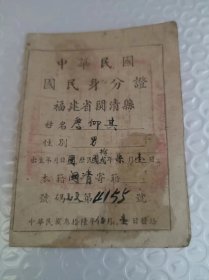 中華民國
國民身分證
福建省閩清縣
姓名 詹仰其
性別 男
出生年月日國 年 月 日
本籍 閩清 寄籍
號碼 字第4155號
中華民國叁拾 年 月 日發給